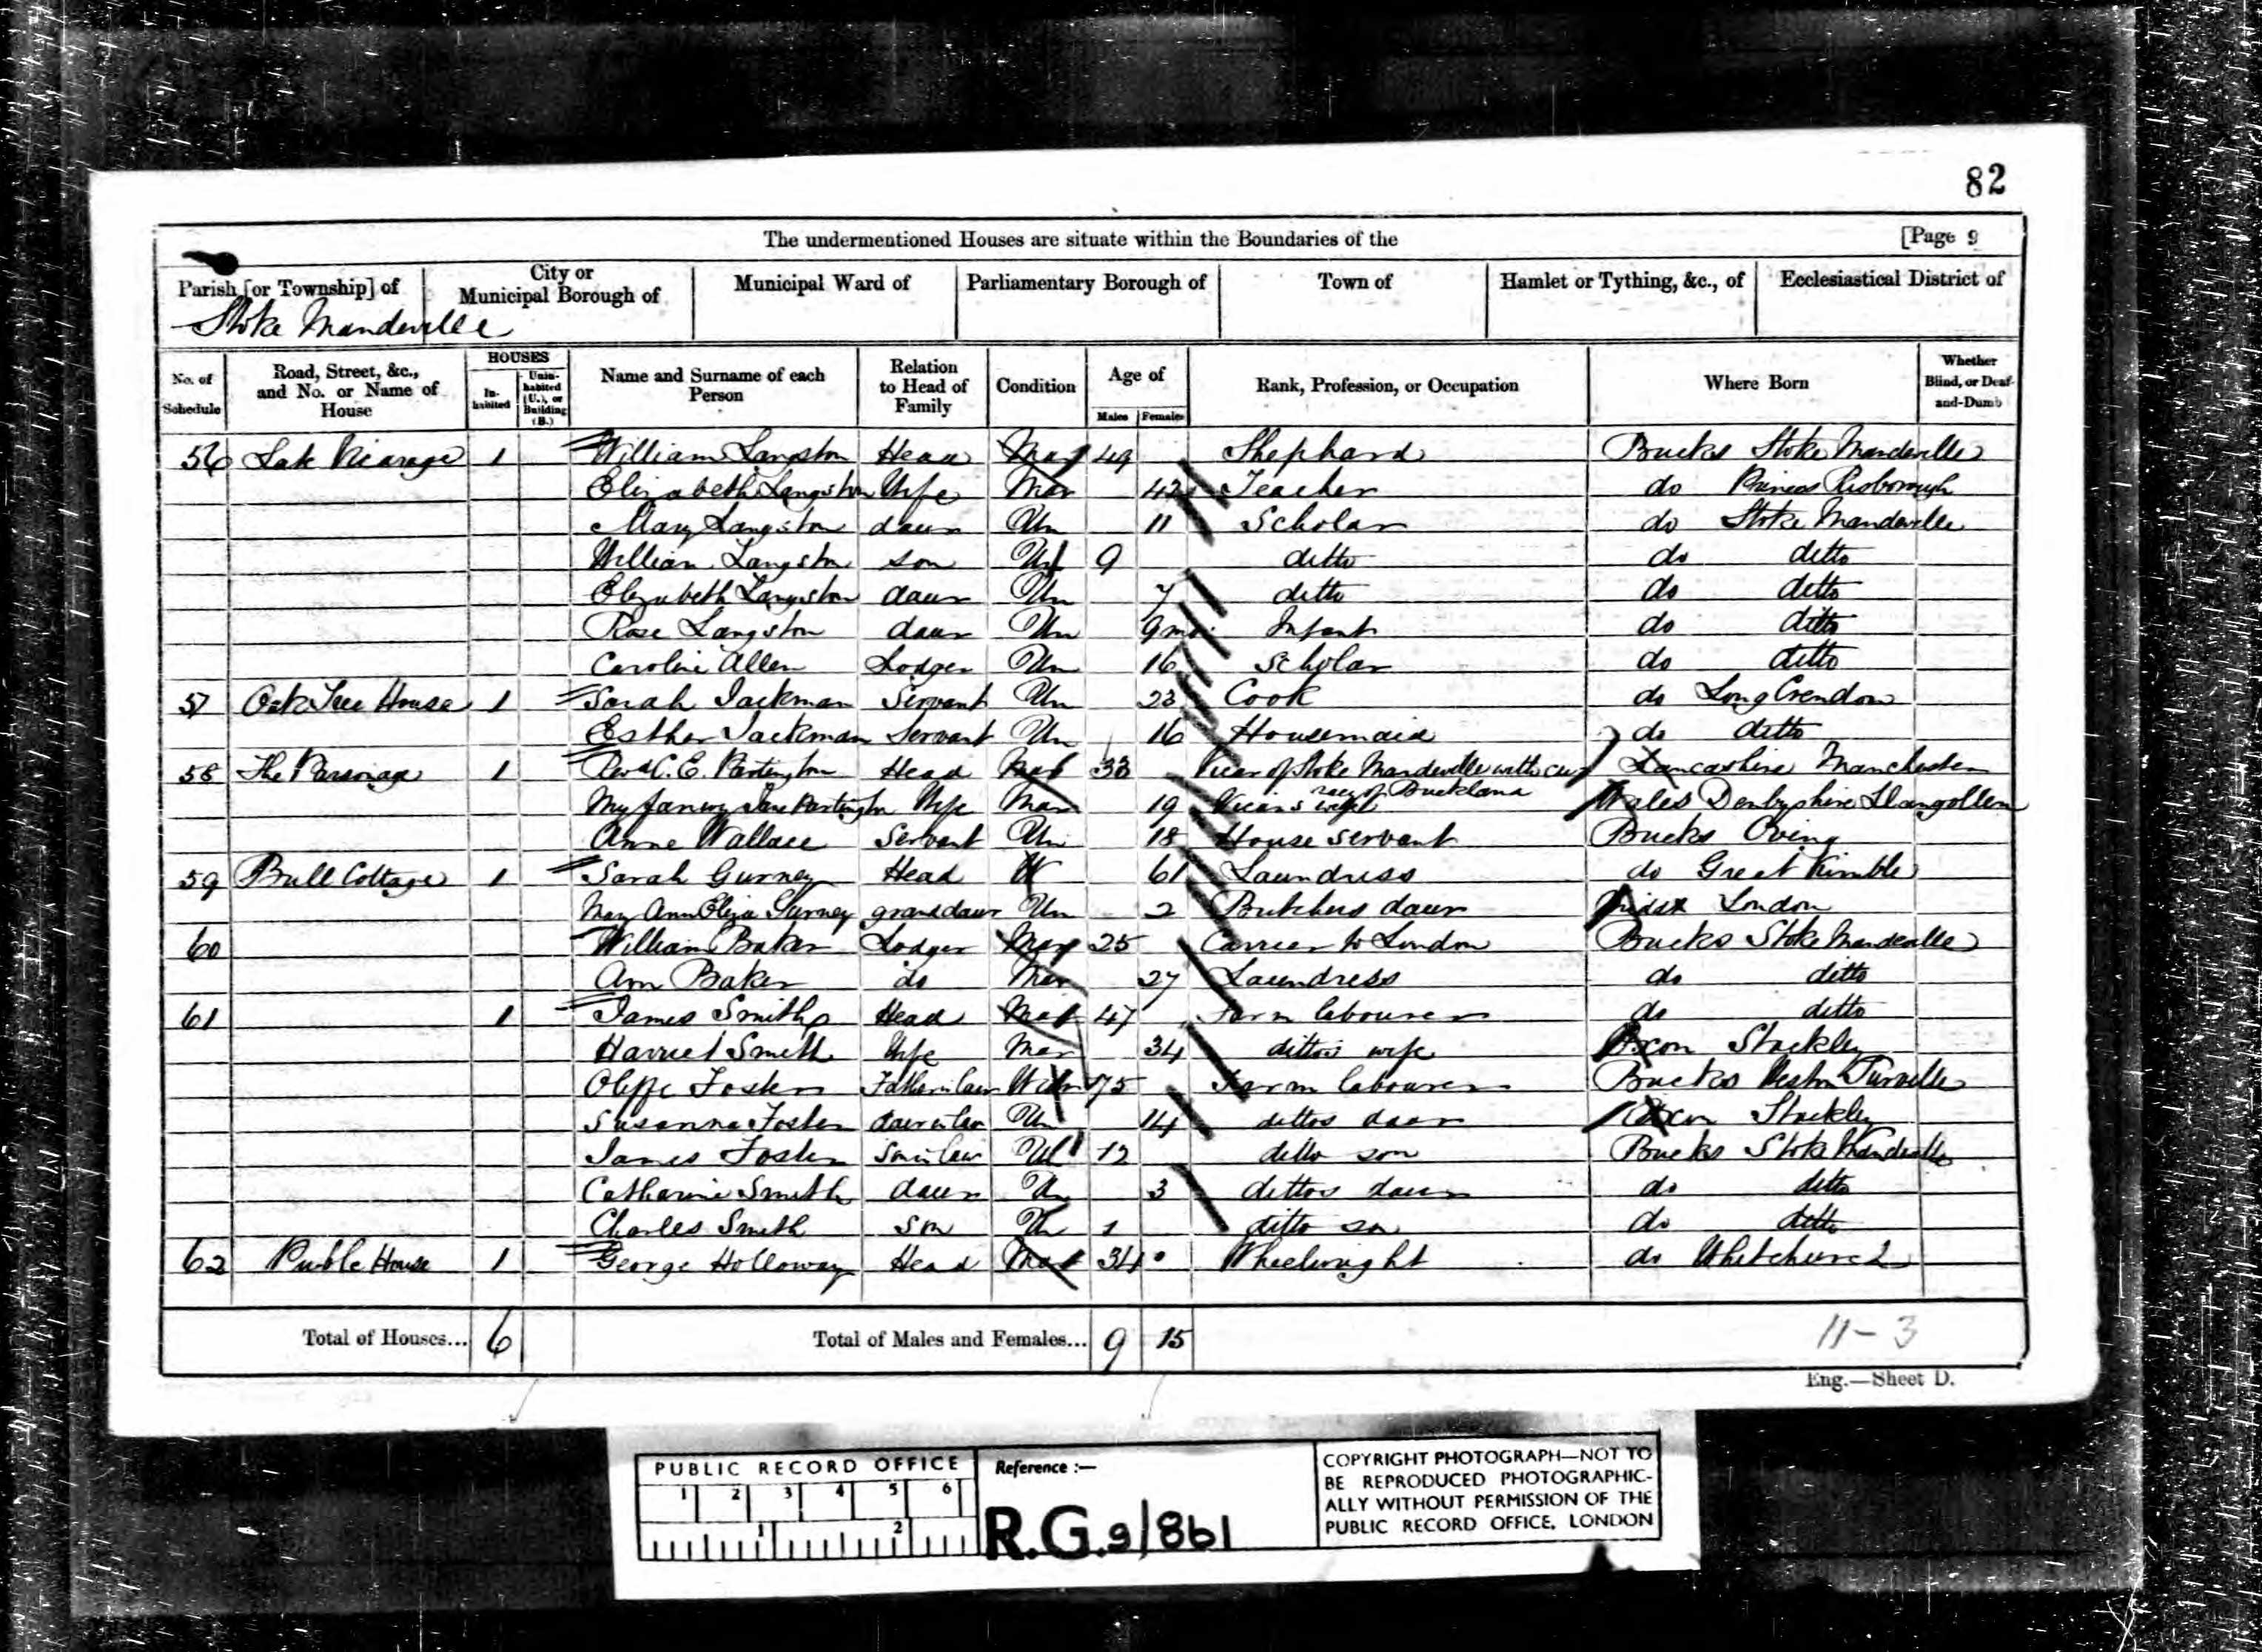 82
The undermentioned Houses are situate within the Boundaries of the [Page 9
Parish [or Township] of City or Municipal Borough of Municipal Ward of Parliamentary Borough of Town of Hamlet or Tything, &c., of Ecclesiastical District of
Stoke Mandeville
No. of Schedule Road, Street, &c., and No. or Name of House HOUSES In-habited Unin-habited (U.), or Building (B.) Name and Surname of each Person Relation to Head of Family Condition Age of Males Females Rank, Profession, or Occupation Where Born Whether Blind, or Deaf-and-Dumb
56 Vicarage 1 William Langston Head Mar 49 Shephard Bucks Stoke Mandeville
Elizabeth Langston Wife Mar 42 Teacher do Princes Risborough
Mary Langston daur Un 11 Scholar do Stoke Mandeville
William Langston son Un 9 ditto do ditto
Elizabeth Langston daur Un 7 ditto do ditto
Rose Langston daur Un 9 mo Infant do ditto
Caroline Allen Lodger Un 16 Scholar do ditto
57 Oak Tree House 1 Sarah Jackman Servant Un 23 Cook do Long Crendon
Esther Jackman Servant Un 16 Housemaid do ditto
58 The Parsonage 1 Revd C. E. Partington Head Mar 33 Vicar of Stoke Mandeville with Lancashire Manchester
Jane Partington Wife Mar 19 Vicars wife of Buckland Wales Denbyshire Llangollen
Anne Wallace Servant Un 18 House servant Bucks Oving
59 Bull Cottage 1 Sarah Gurney Head W 61 Laundress do Great Kimble
Mary Ann Eliza Gurney grandaur Un 2 Butchers daur London
60 William Baker Lodger Mar 25 Carrier to London Bucks Stoke Mandeville
Ann Baker do Mar 27 Laundress do ditto
61 1 James Smith Head Mar 47 Farm labourer do ditto
Harriet Smith Wife Mar 34 dittos wife Oxon Stackley
Oliffe Foster Father in law Widr 75 Farm labourer Bucks Weston Turville
Susanna Foster daur in law Un 14 dittos daur Oxon Stackley
James Foster Son in law Un 12 ditto son Bucks Stoke Mandeville
Catharine Smith daur Un 3 dittos daur do ditto
Charles Smith Son Un 1 ditto son do ditto
62 Public House 1 George Holloway Head Mar 34 Wheelwright do Whitchurch
Total of Houses... 6 Total of Males and Females... 9 15 11-3
Eng.—Sheet D.
PUBLIC RECORD OFFICE
1 2 3 4 5 6
1 2
Reference :—
R.G. 9/861
COPYRIGHT PHOTOGRAPH—NOT TO
BE REPRODUCED PHOTOGRAPHIC-
ALLY WITHOUT PERMISSION OF THE
PUBLIC RECORD OFFICE, LONDON